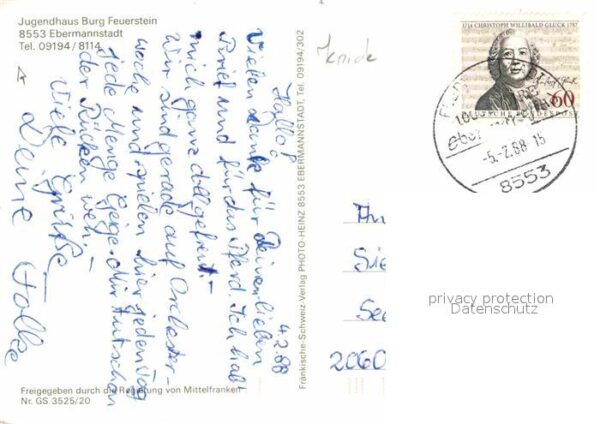 Jugendhaus Burg Feuerstein
8553 Ebermannstadt
Tel. 09194/8114
4.2.88
Hallo!
Vielen Dank für Deinen lieben
Brief und für das Pferd. Ich hab
mich ganz doll gefreut.
Wir sind gerade auf Orchester-
woche und spielen hier jeden Tag
jede Menge Geige. Mir tut schon
der Rücken weh.
Viele Grüße
Deine
Fränkische-Schweiz-Verlag PHOTO-HEINZ 8553 EBERMANNSTADT, Tel. 09194/302
1714 CHRISTOPH WILLIBALD GLUCK 1787
60
DEUTSCHE BUNDESPOST
-5.-2.88-15
8553
An
See
2060
privacy protection
Datenschutz
Freigegeben durch die Regierung von Mittelfranken
Nr. GS 3525/20